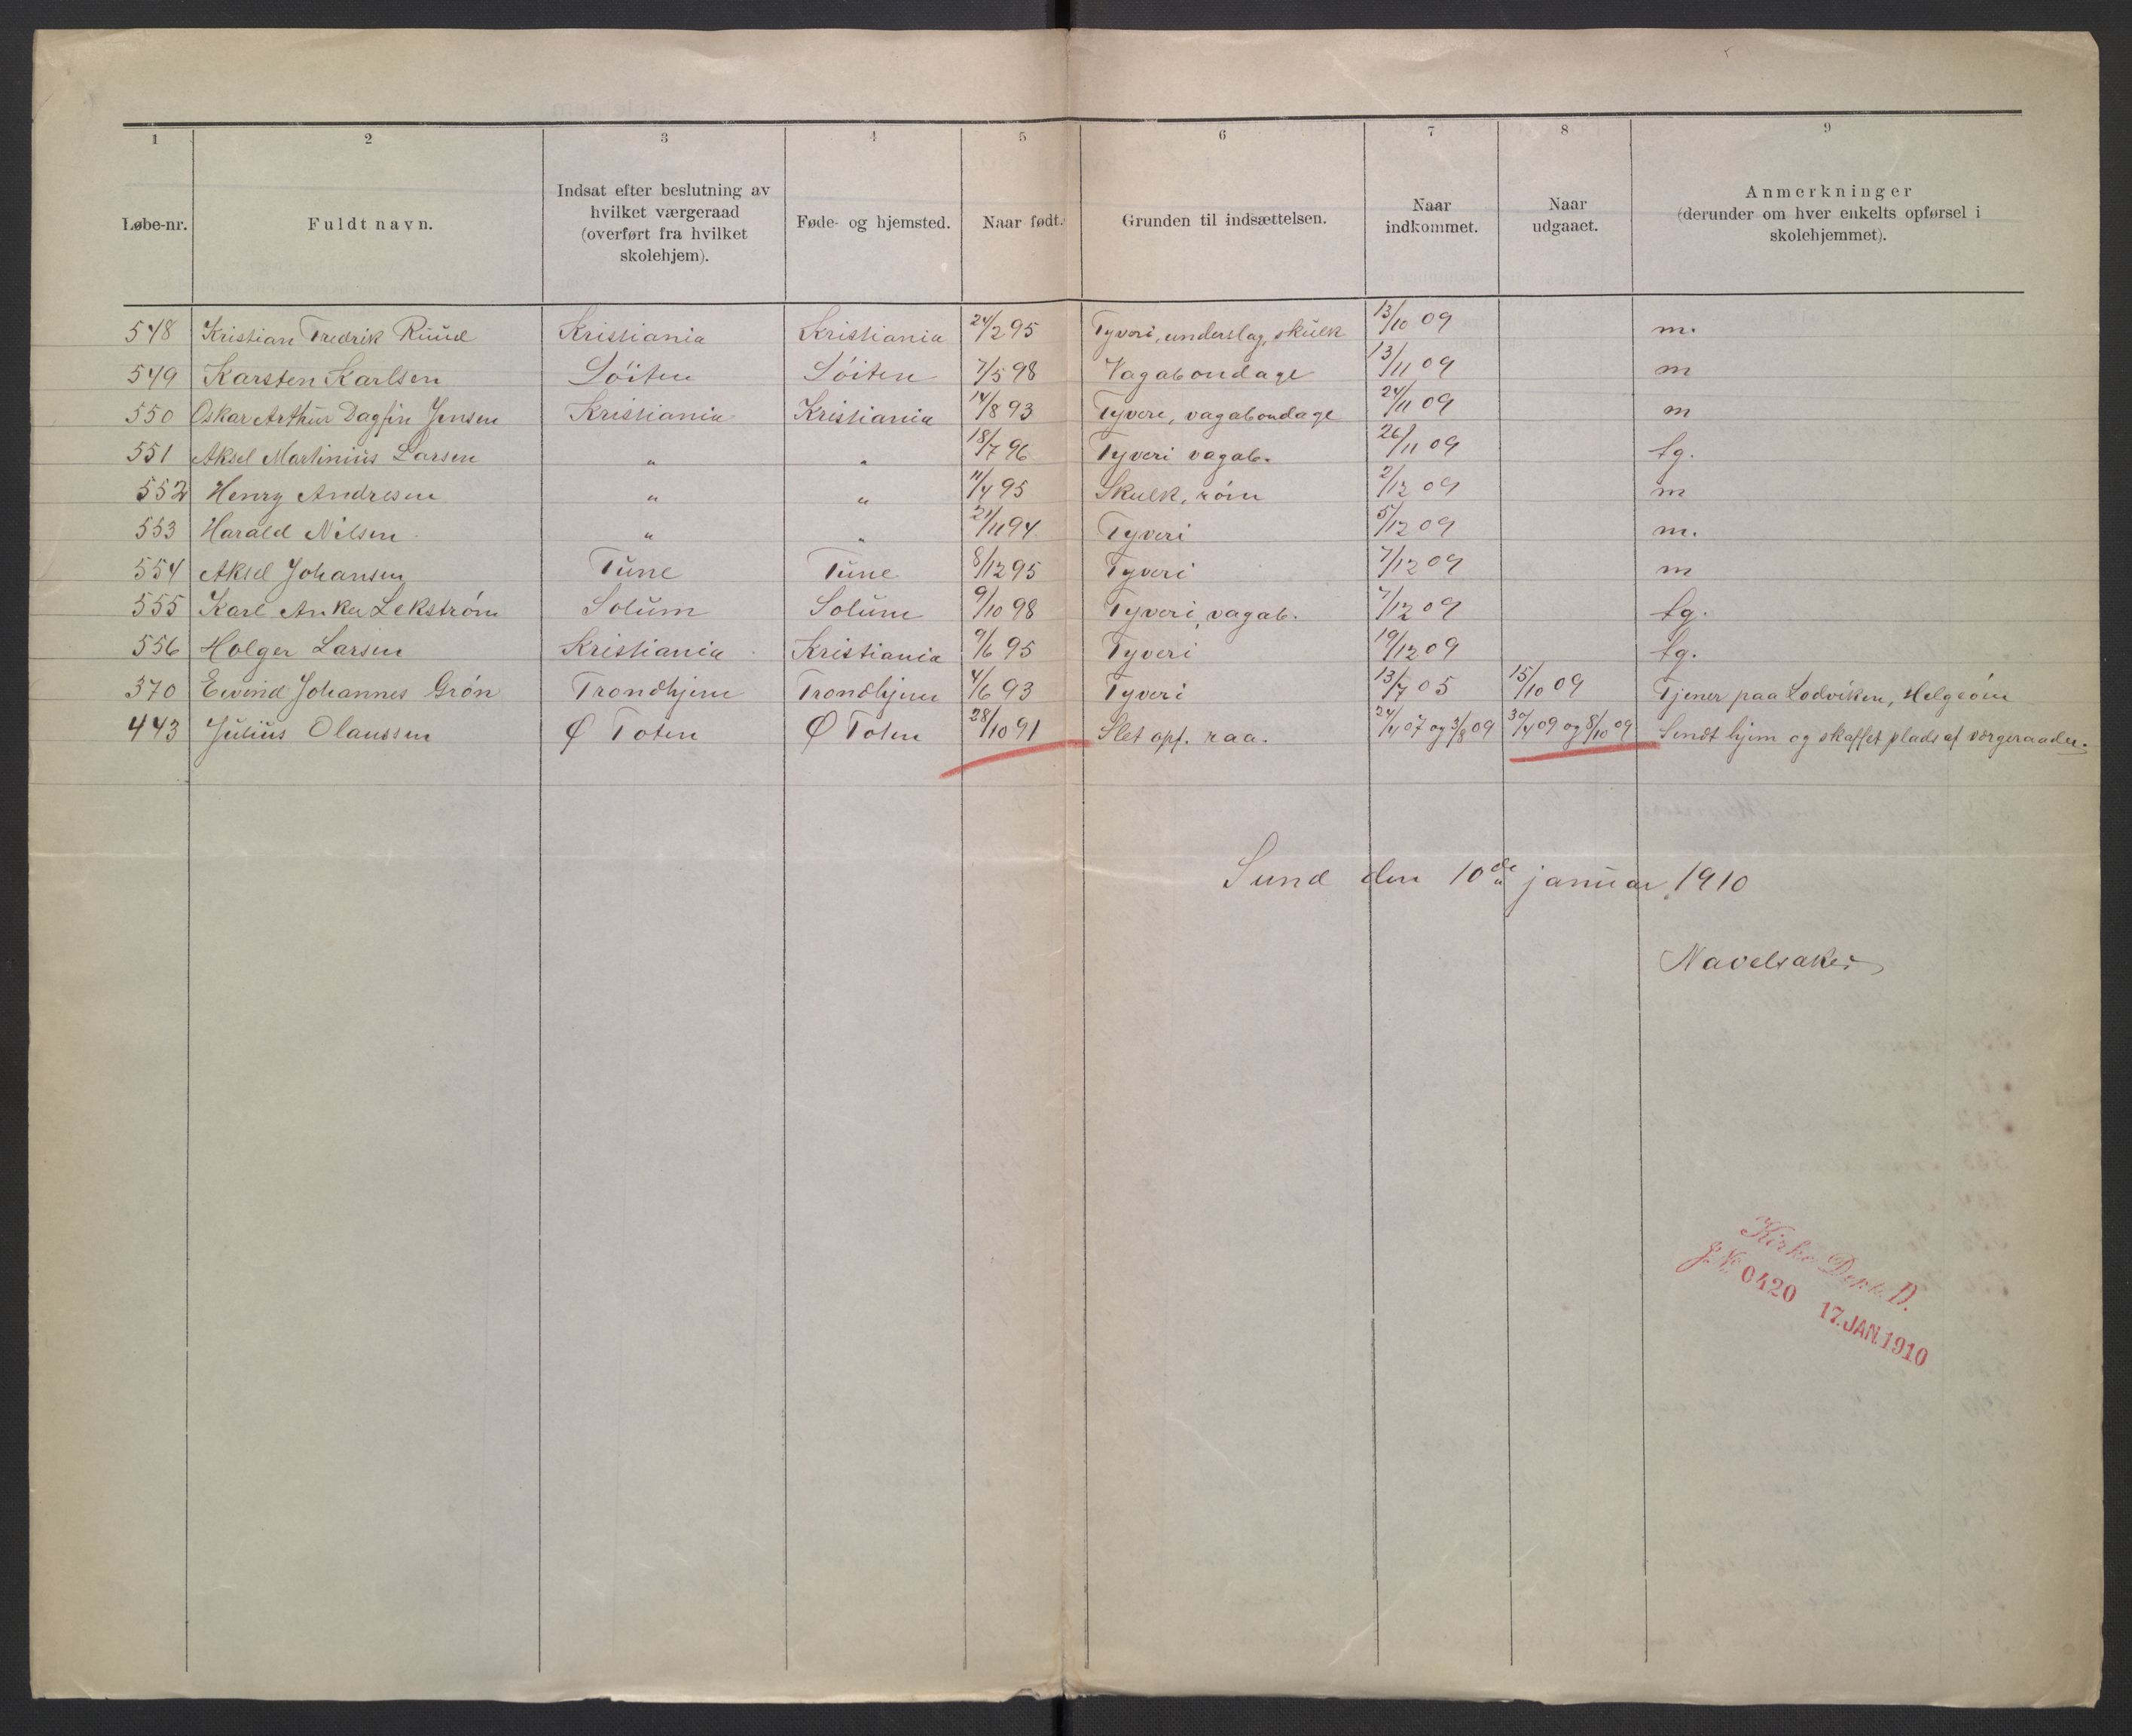 1 2 3 4 5 6 7 8 9
Løbe-nr. Fuldt navn. Indsat efter beslutning av hvilket værgeraad (overført fra hvilket skolehjem). Føde- og hjemsted. Naar født. Grunden til indsættelsen. Naar indkommet. Naar udgaaet. Anmerkninger (derunder om hver enkelts opførsel i skolehjemmet).
548 Kristian Fredrik Ruud Kristiania Kristiania 24/2 95 Tyveri, underslag, skulk 13/10 09 m.
549 Karsten Karlsen Löiten Löiten 7/5 98 Vagabondage 13/11 09 m
550 Oskar Arthur Dagfin Jensen Kristiania Kristiania 14/8 93 Tyveri, vagabondage 24/11 09 m
551 Aksel Martinius Larsen " " 18/7 96 Tyveri vagab. 26/11 09 tg.
552 Henry Andresen " " 11/4 95 Skulk, röm 2/12 09 m
553 Harald Nilsen " " 21/11 94 Tyveri 5/12 09 m.
554 Aksel Johansen Tune Tune 8/12 95 Tyveri 7/12 09 m
555 Karl Anker Lekström Solum Solum 9/10 98 Tyveri, vagab. 7/12 09 tg.
556 Holger Larsen Kristiania Kristiania 9/6 95 Tyveri 19/12 09 tg.
370 Eivind Johannes Grön Trondhjem Trondhjem 4/6 93 Tyveri 13/7 05 15/10 09 Tjener paa Lodviken, Helgeöen
443 Julius Olaussen Ø Toten Ø Toten 28/10 91 Slet opf. raa. 24/4 07 og 3/8 09 30/4 09 og 8/10 09 Sendt hjem og skaffet plads af værgeraadet.
Sund den 10de januar 1910
Navelsaker
Kirke Dept. D.
J. No 0420 17. JAN. 1910